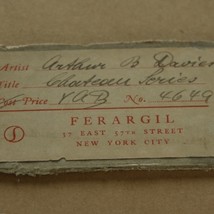 Artist Arthur B Davies
Title Chateau Series
Price V.A.B No. 4649
FERARGIL
37 EAST 57TH STREET
NEW YORK CITY